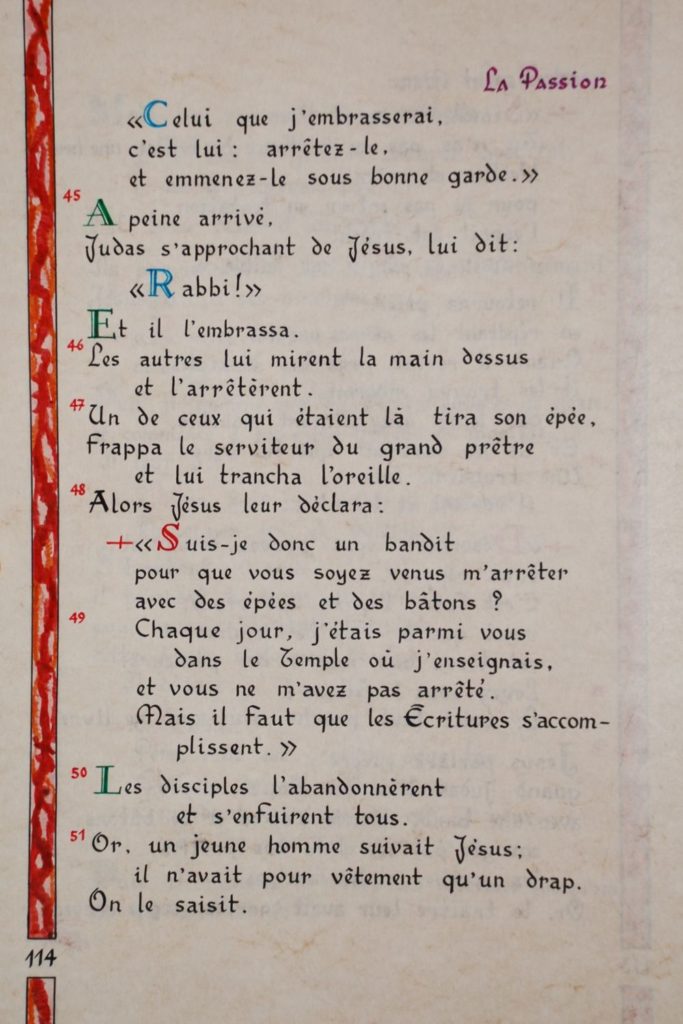 La Passion
«Celui que j'embrasserai,
c'est lui : arrêtez-le,
et emmenez-le sous bonne garde.»
45
A peine arrivé,
Judas s'approchant de Jésus, lui dit :
«Rabbi!»
Et il l'embrassa.
46 Les autres lui mirent la main dessus
et l'arrêtèrent.
47 Un de ceux qui étaient là tira son épée,
Frappa le serviteur du grand prêtre
et lui trancha l'oreille.
48 Alors Jésus leur déclara :
+«Suis-je donc un bandit
pour que vous soyez venus m'arrêter
avec des épées et des bâtons ?
49 Chaque jour, j'étais parmi vous
dans le Temple où j'enseignais,
et vous ne m'avez pas arrêté.
Mais il faut que les Écritures s'accom-
plissent.»
50 Les disciples l'abandonnèrent
et s'enfuirent tous.
51 Or, un jeune homme suivait Jésus;
il n'avait pour vêtement qu'un drap.
On le saisit.
114